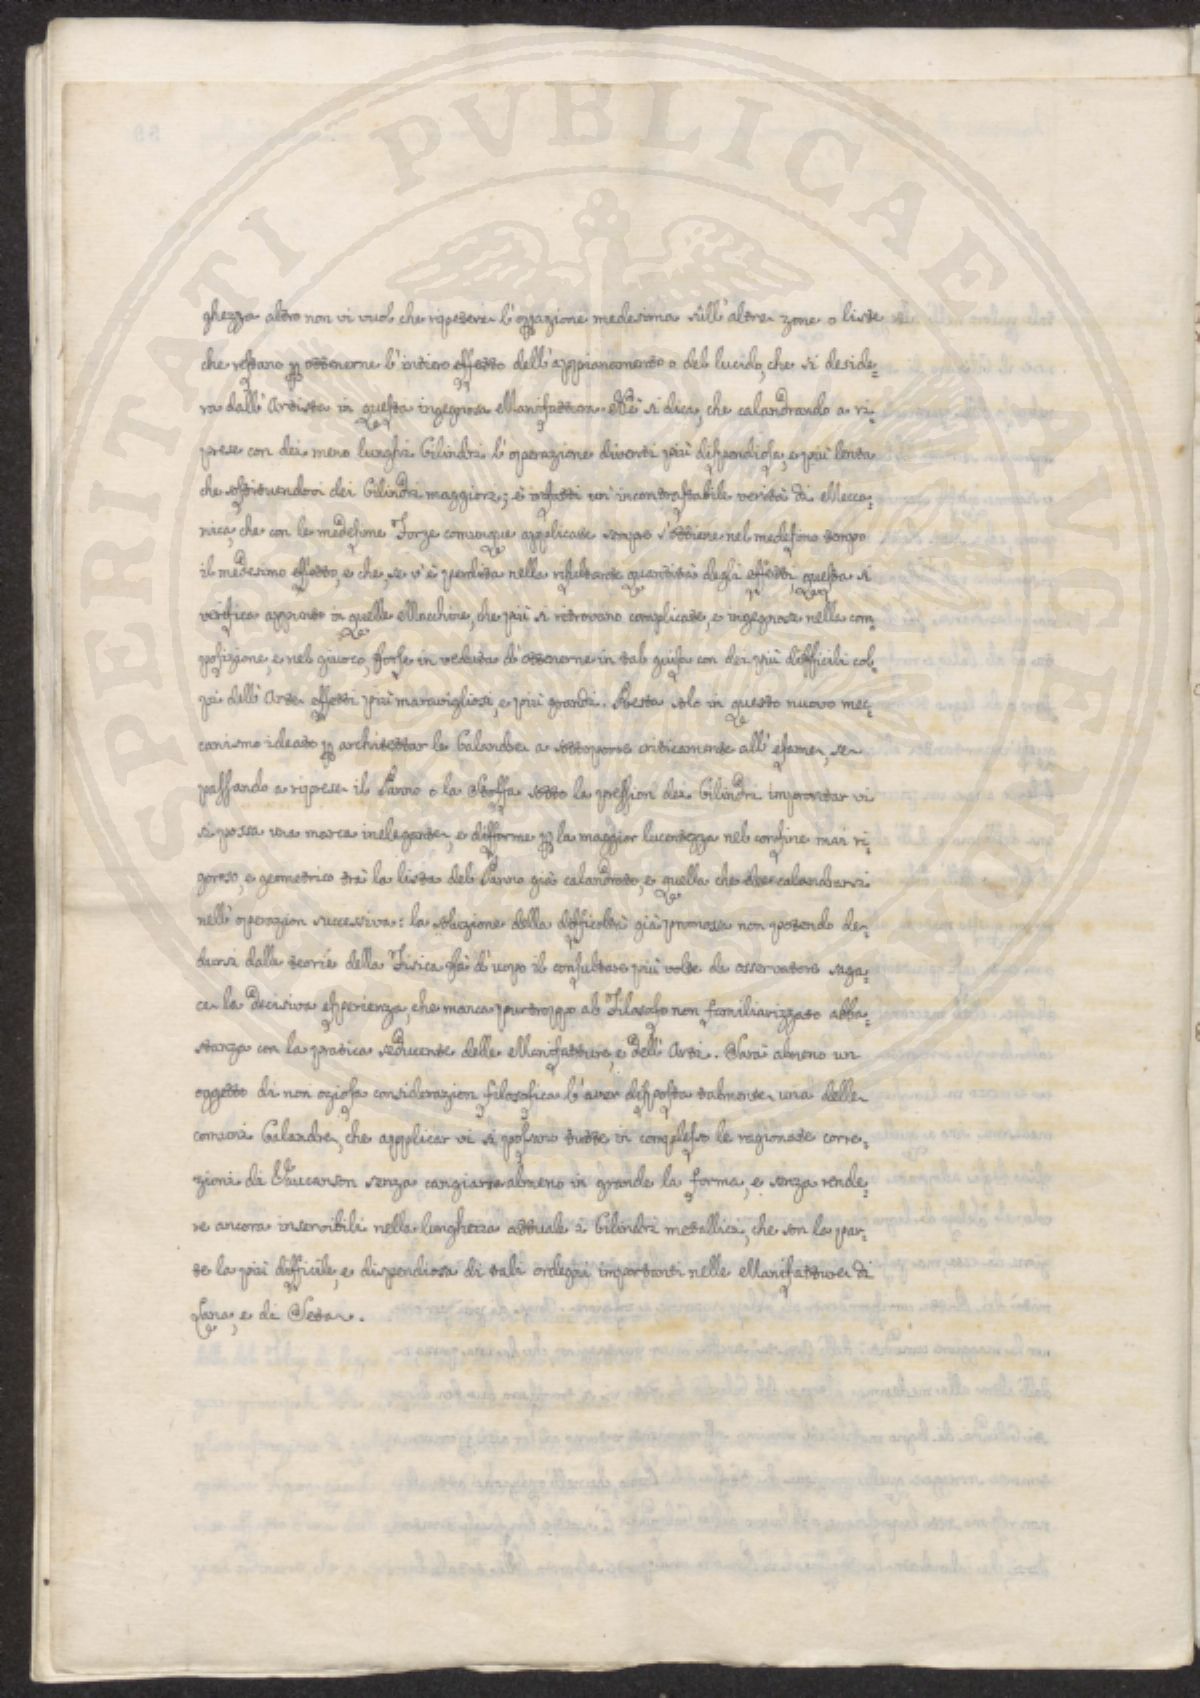 PROSPERITATI PVBLICAE AVGENDAE
ghezza altro non vi vuol che ripetere l'opazione medesima sull'altre zone o liste
che restano p ottenerne l'intiero effetto dell'appianamento o del lucido, che si deside=
ra dall'Artista in questa ingegnosa Manifattura. Nè si dica, che calandrando a ri=
prese con dei meno lunghi Cilindri l'operazione diventi più dispendiosa, e più lenta
che sostituendovi dei Cilindri maggiori; è infatti un'incontrastabile verità di Mecca=
nica, che con le medesime Forze comunque applicate sempre s'ottiene nel medesimo tempo
il medesimo effetto, e che se v'è perdita nella risultante quantità degli effetti, questa si
verifica appunto in quelle Macchine, che più si ritrovano complicate, e ingegnose nella com=
posizione, e nel giuoco, forse in veduta d'ottenerne in tal guisa con dei più difficili col=
pi dell'Arte effetti più maravigliosi, e più grandi. Resta solo in questo nuovo mec=
canismo ideato p architettar le Calandre a sottoporre criticamente all'esame, se
passando a riprese il Panno o la Stoffa sotto la pression dei Cilindri improntar vi
si possa una marca inelegante, e difforme p la maggior lucentezza nel confine mai ri=
goroso, e geometrico trà la lista del Panno già calandrato, e quella che dee calandrarsi
nell'operazion successiva: la soluzione della difficoltà già promossa non potendo de=
dursi dalla teorie della Fisica fà d'uopo il consultare più volte da osservatore saga=
ce la decisiva esperienza, che manca purtroppo al Filosofo non familiarizzato abba=
stanza con la pratica seducente delle Manifatture, e dell'Arti. Sarà almeno un
oggetto di non oziosa considerazion filosofica l'aver disposta talmente una delle
comuni Calandre, che applicar vi si possano tutte in complesso le ragionate corre=
zioni di Vaucanson senza cangiarne almeno in grande la forma, e senza rende=
re ancora inservibili nella lunghezza attuale i Cilindri metallici, che son la par=
te la più difficile, e dispendiosa di tali ordegni importanti nelle Manifatture di
Lana, e di Seta.